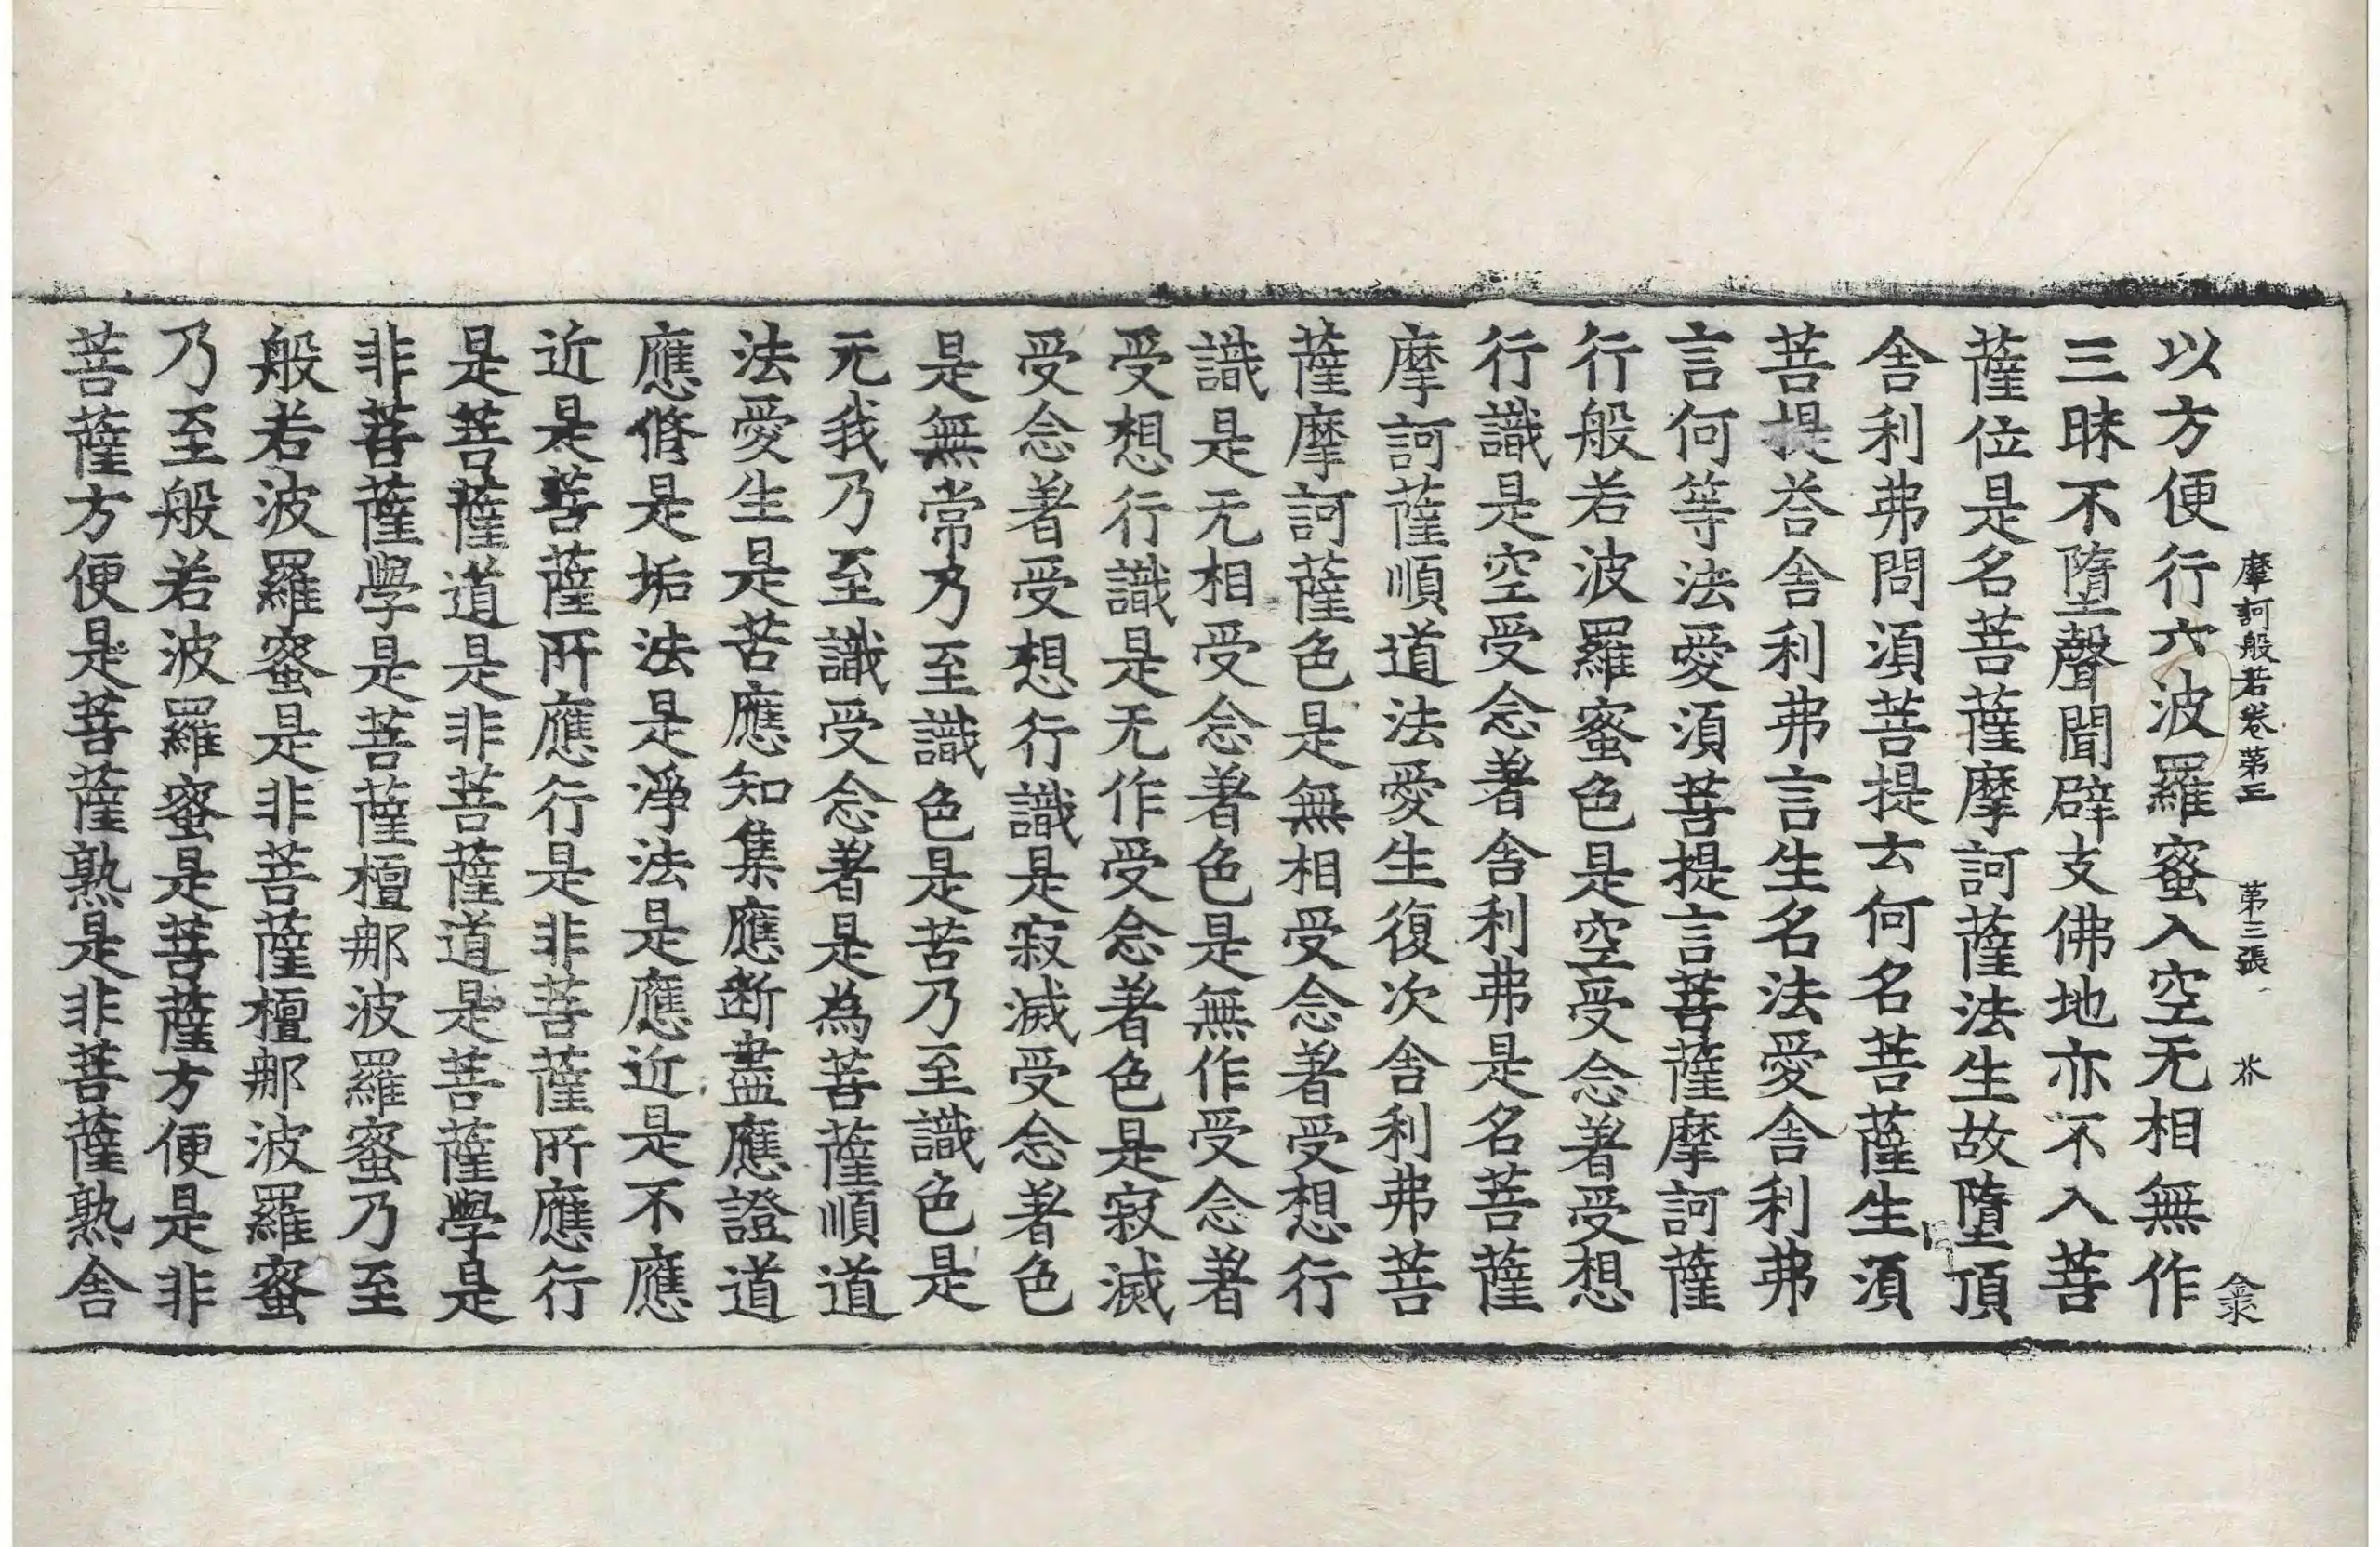 摩訶般若卷第三　第三張　芥
以方便行六波羅蜜入空无相無作
三昧不墮聲聞辟支佛地亦不入菩
薩位是名菩薩摩訶薩法生故墮頂
舍利弗問須菩提云何名菩薩生須
菩提荅舍利弗言生名法愛舍利弗
言何等法愛須菩提言菩薩摩訶薩
行般若波羅蜜色是空受念著受想
行識是空受念著舍利弗是名菩薩
摩訶薩順道法愛生復次舍利弗菩
薩摩訶薩色是無相受念著受想行
識是无相受念著色是無作受念著
受想行識是无作受念著色是寂滅
受念著受想行識是寂滅受念著色
是無常乃至識色是苦乃至識色是
无我乃至識受念著是為菩薩順道
法愛生是苦應知集應断盡應證道
應脩是垢法是淨法是應近是不應
近是菩薩所應行是非菩薩所應行
是菩薩道是非菩薩道是菩薩學是
非菩薩學是菩薩檀那波羅蜜乃至
般若波羅蜜是非菩薩檀那波羅蜜
乃至般若波羅蜜是菩薩方便是非
菩薩方便是菩薩熟是非菩薩熟舍